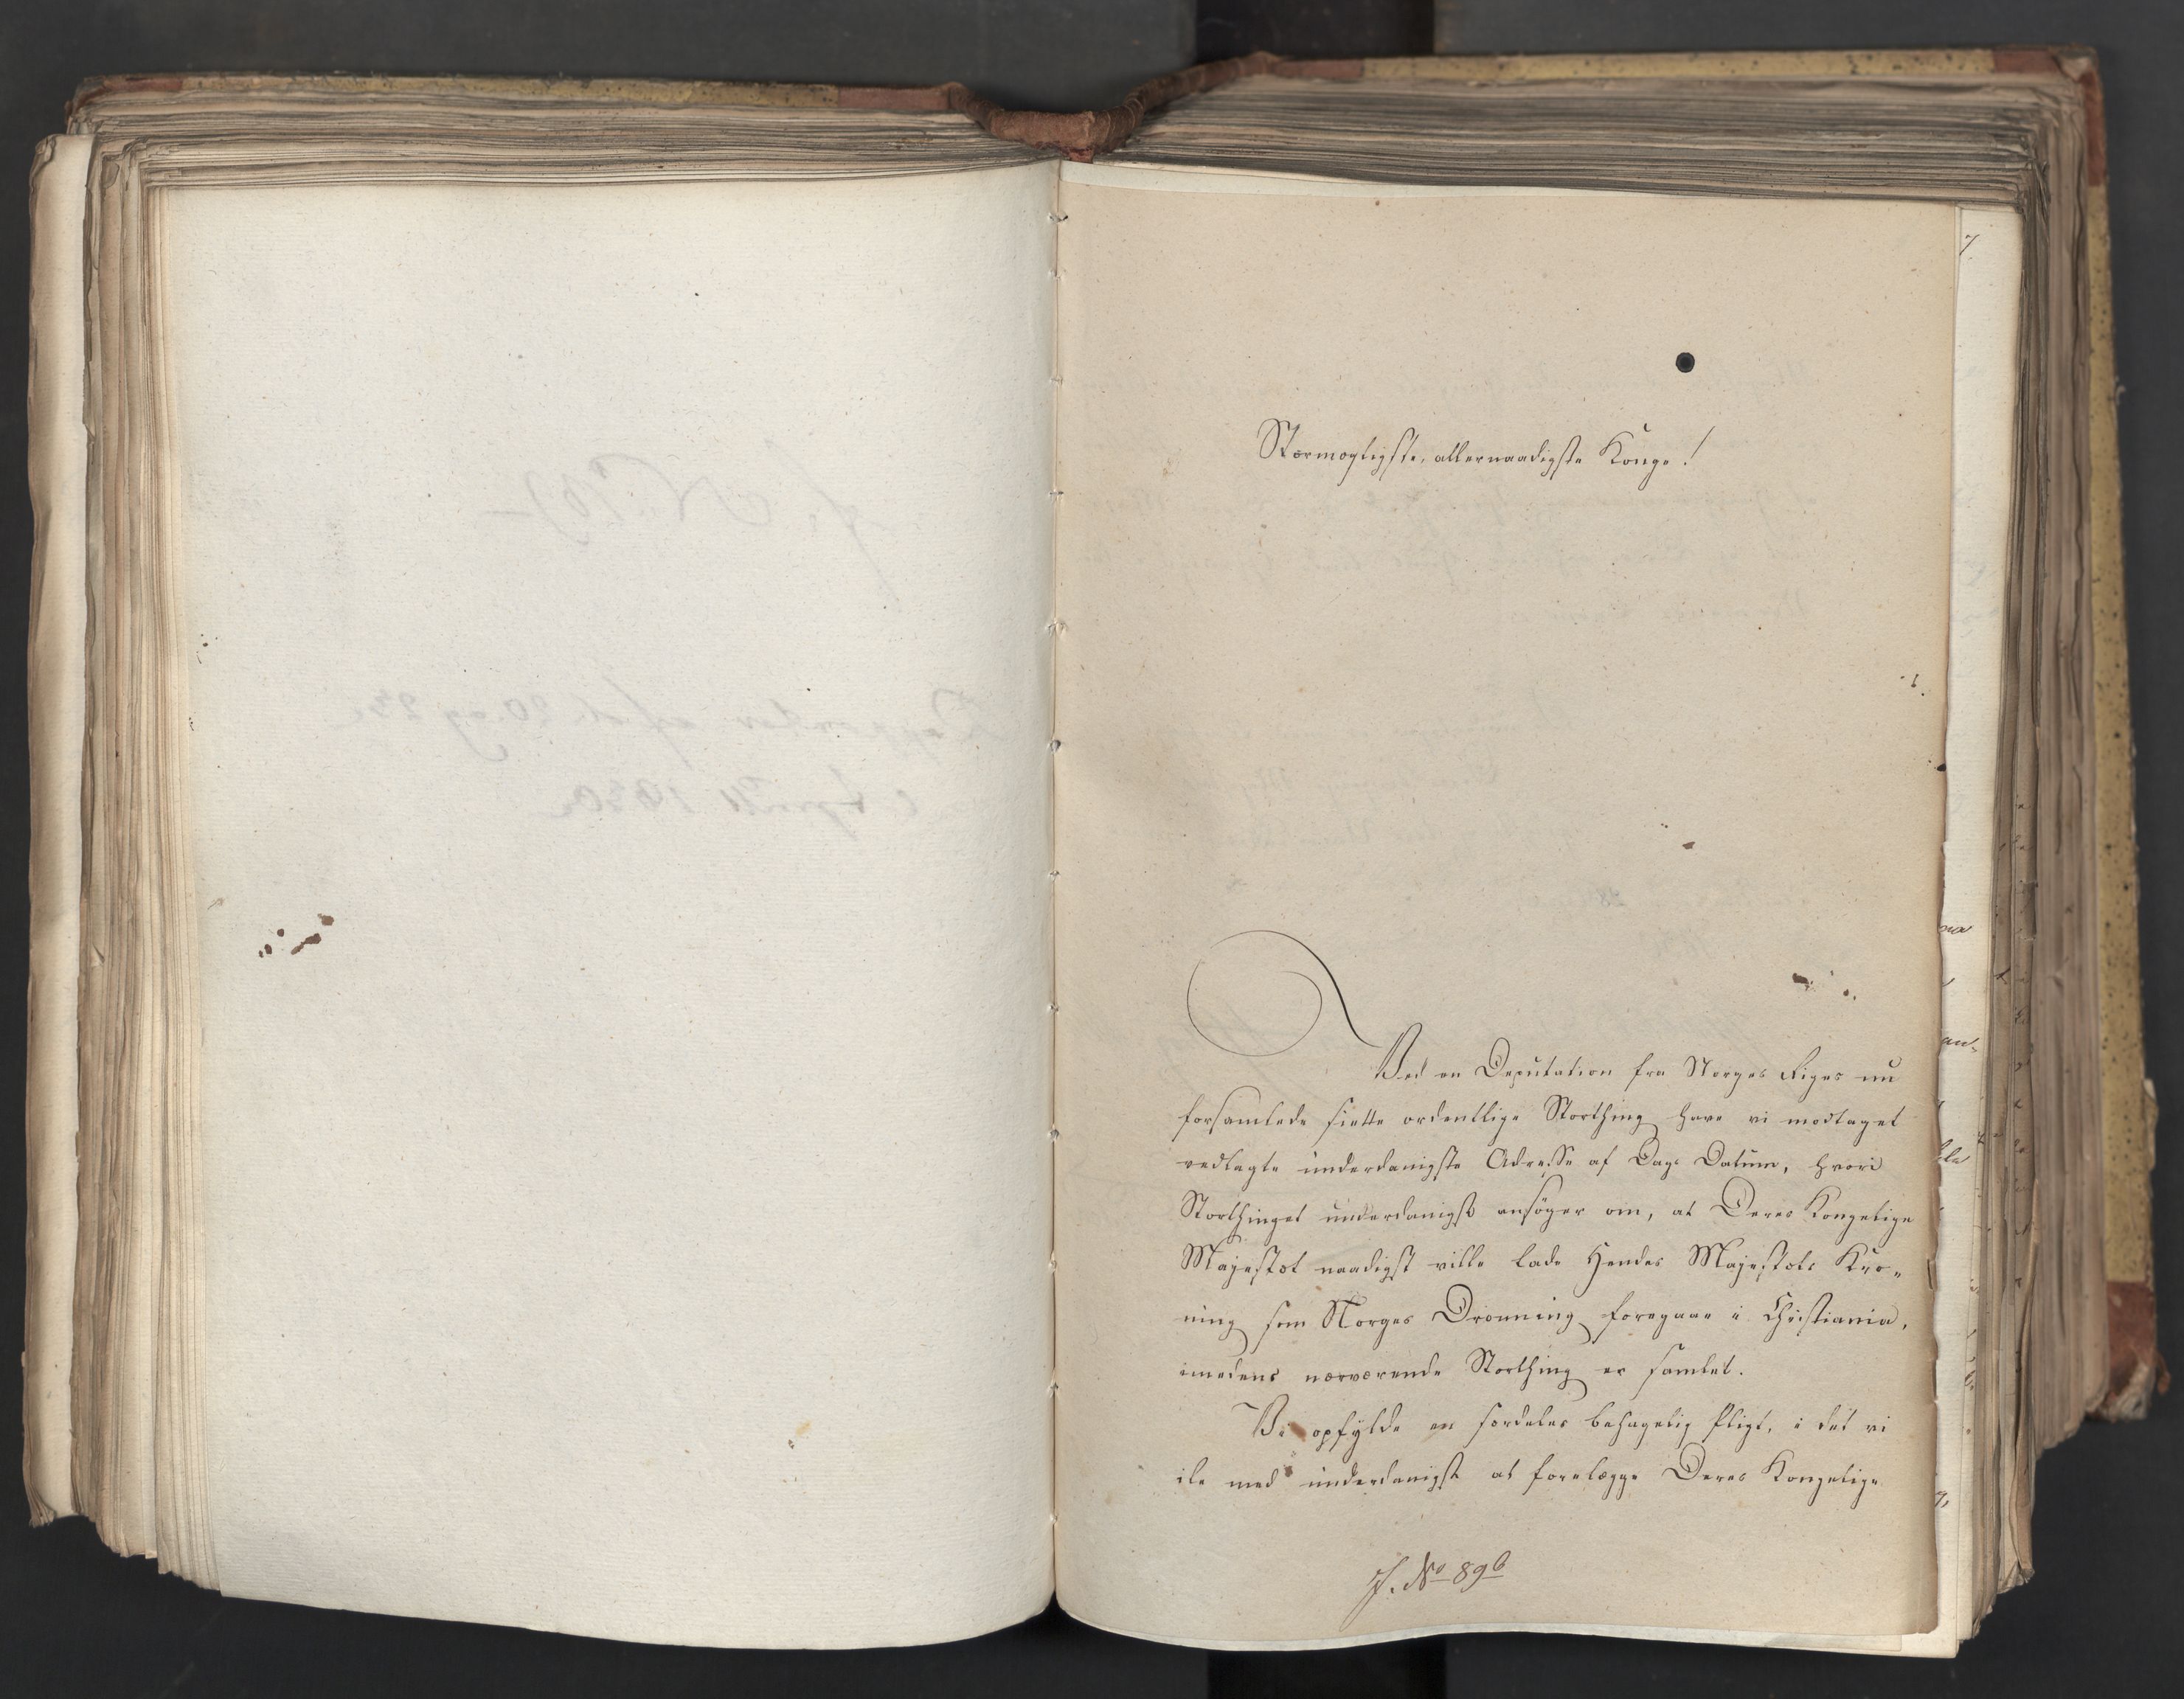 Stormægtigste, allernaadigste Konge!
Ved en Deputation fra Norges Riges nu
forsamlede siette ordentlige Storthing have vi modtaget
vedlagte underdanigste Adresse af Dags Datum, hvori
Storthinget underdanigst ansøger om, at Deres Kongelige
Majestæt naadigst ville lade Hendes Majestæts Kro-
ning som Norges Dronning foregaae i Christiania,
imedens nærværende Storthing er samlet.
Vi opfylde en særdeles behagelig Pligt, i det vi
ile med underdanigst at forelægge Deres Kongelige
J. No 89b